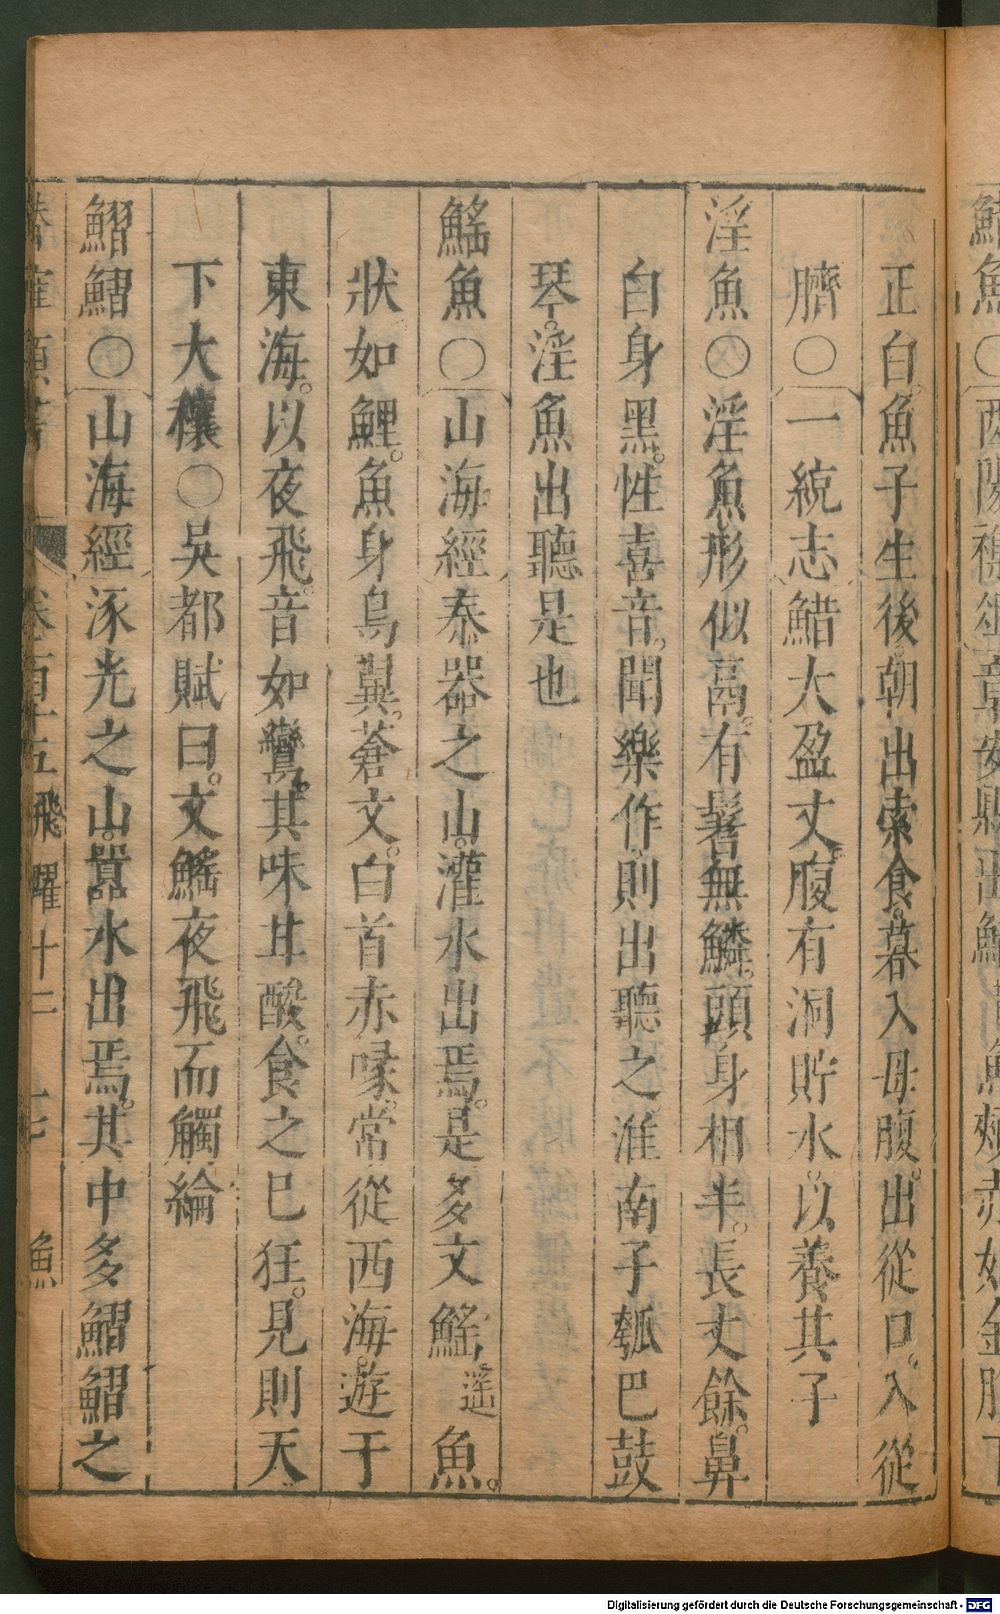 正白魚子生後朝出索食暮入母腹出從口入從
臍〇一統志鯌大盈丈腹有洞貯水以養其子
淫魚〇淫魚形似鬲有鬐無鱗頭身相半長丈餘鼻
白身黑性喜音聞樂作則出聽之淮南子瓠巴鼓
琴淫魚出聽是也
鰩魚〇山海經泰器之山灌水出焉是多文鰩遥魚
狀如鯉魚身鳥翼蒼文白首赤喙常從西海遊于
東海以夜飛音如鸞其味甘酸食之已狂見則天
下大穰〇吳都賦曰文鰩夜飛而觸綸
鰼鰼〇山海經涿光之山嚻水出焉其中多鰼鰼之
卷百十五飛躍十二 魚
Digitalisierung gefördert durch die Deutsche Forschungsgemeinschaft - DFG